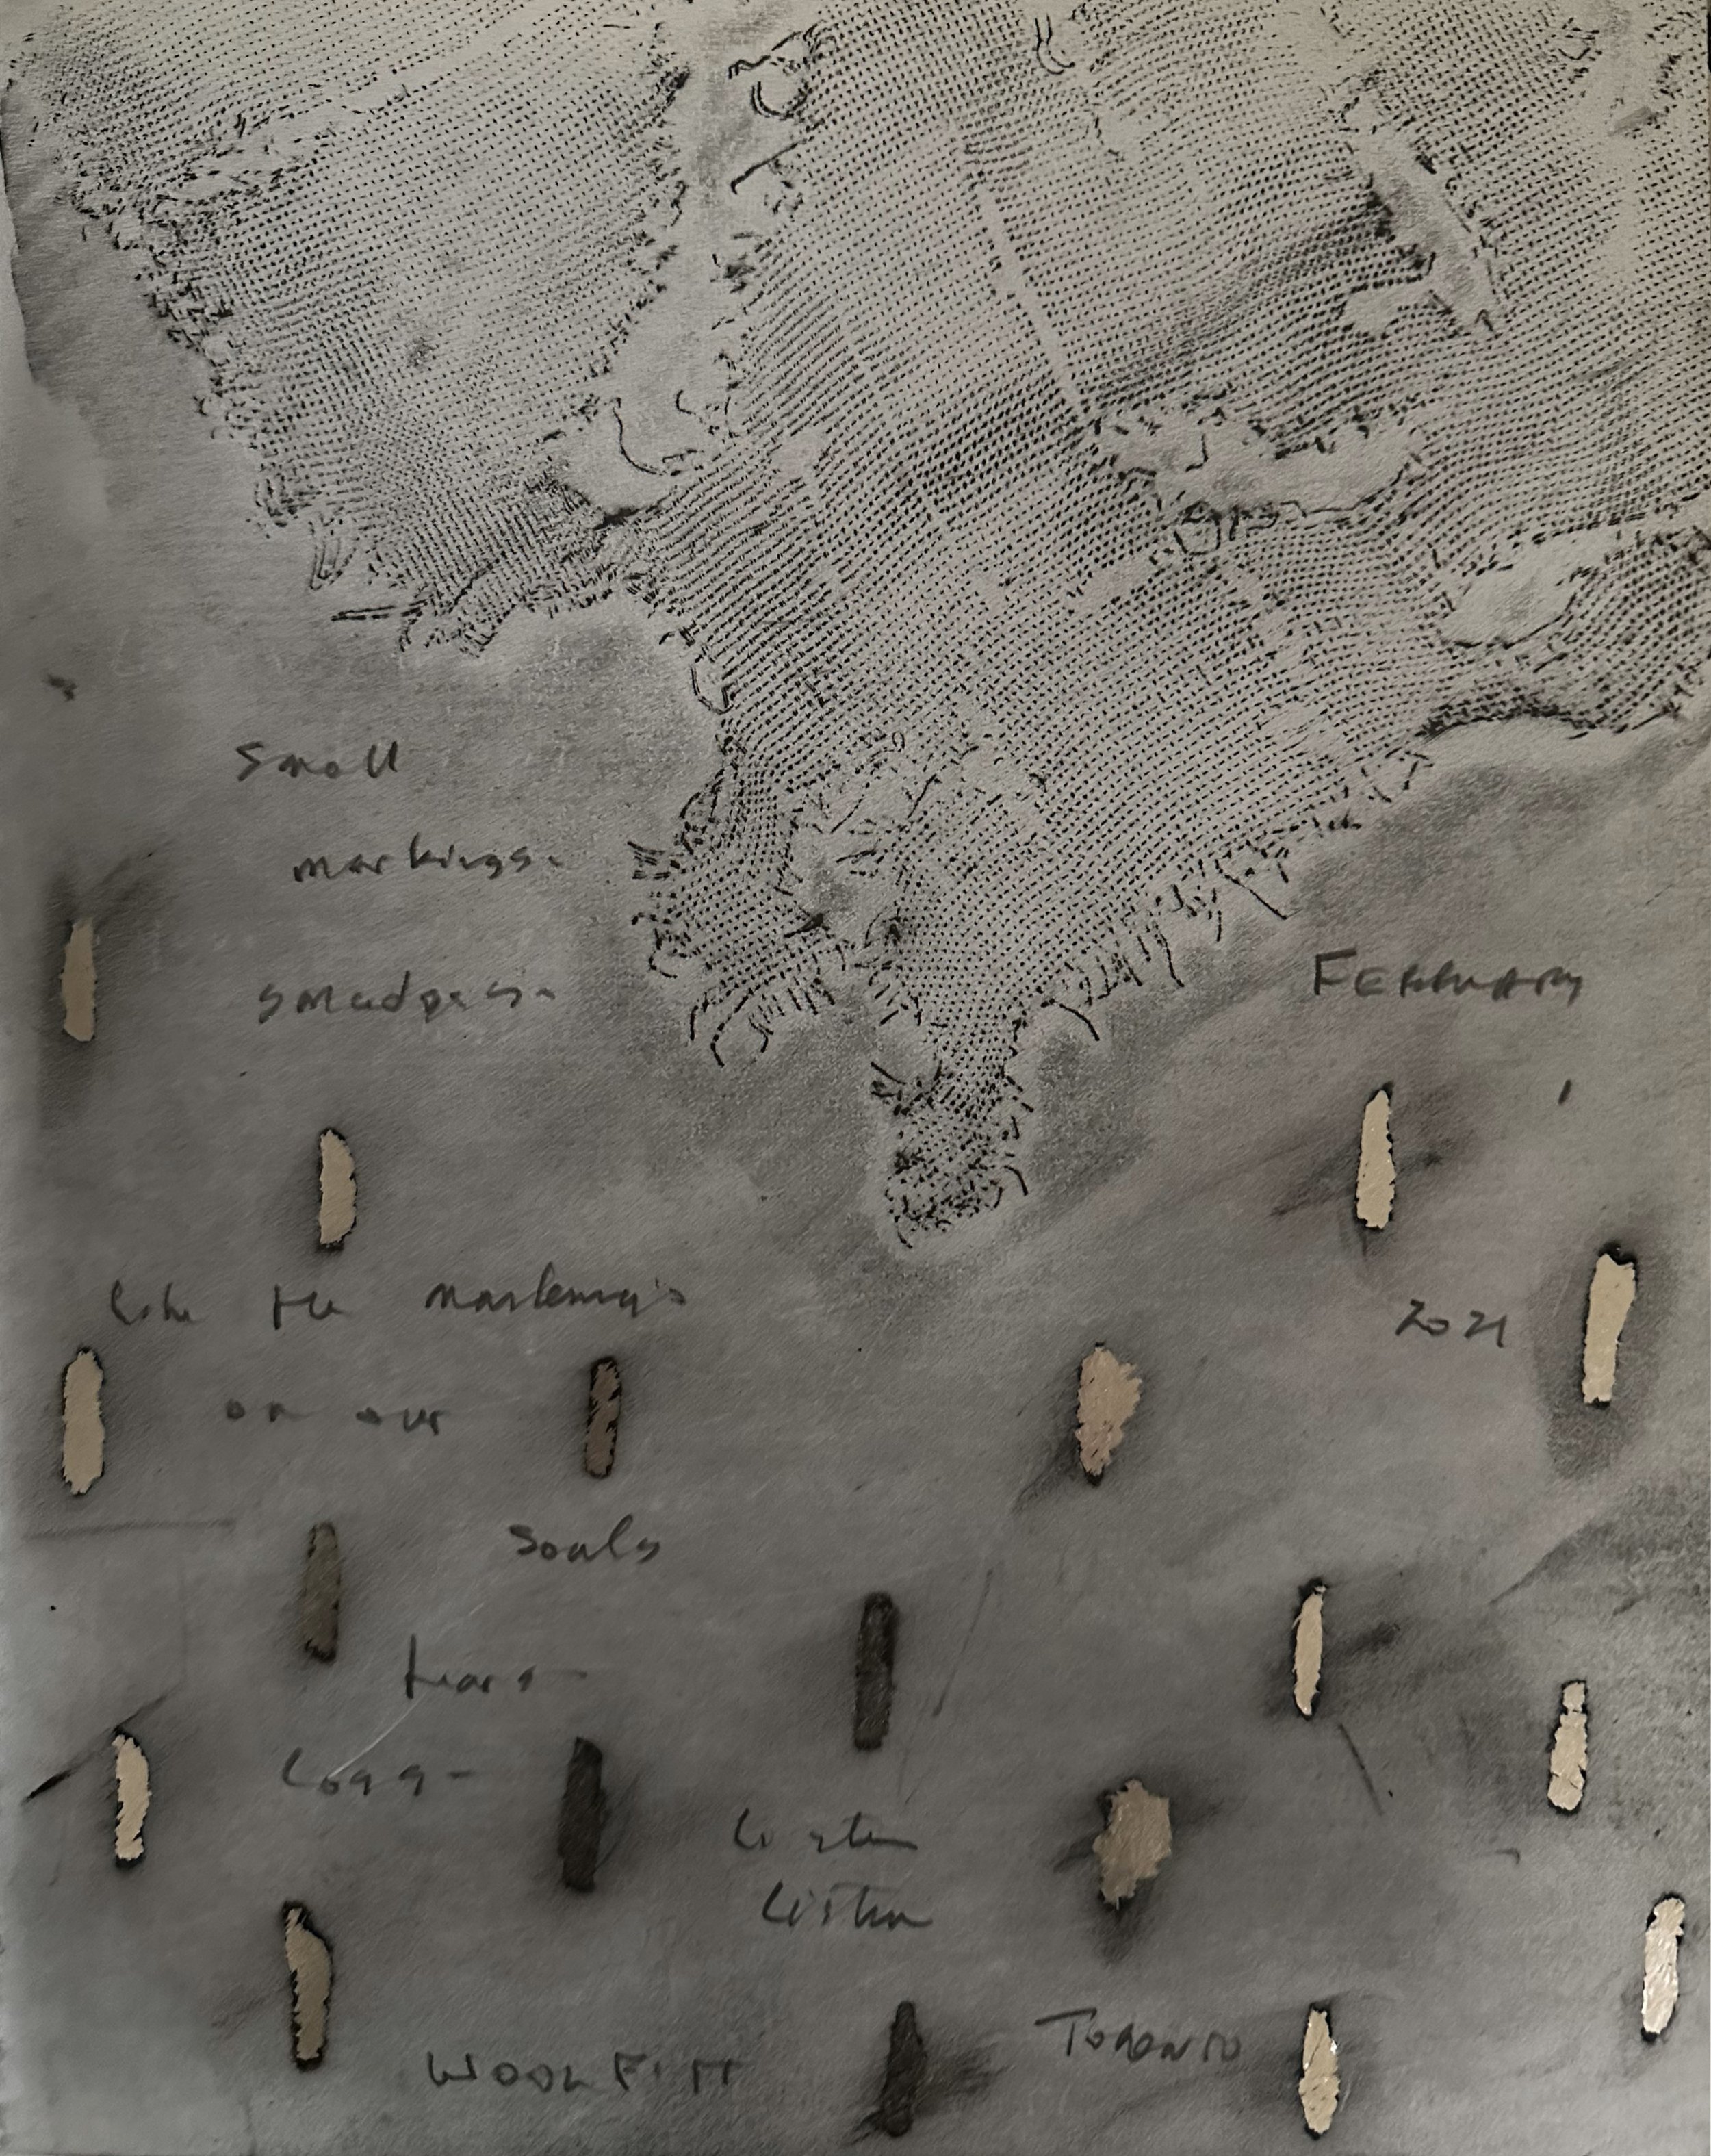 Small
markings.
smudges.
FEBRUARY
like the markings
2021
on our
souls
tears
Loss
Listen
Listen
TORONTO
WOOLFITT